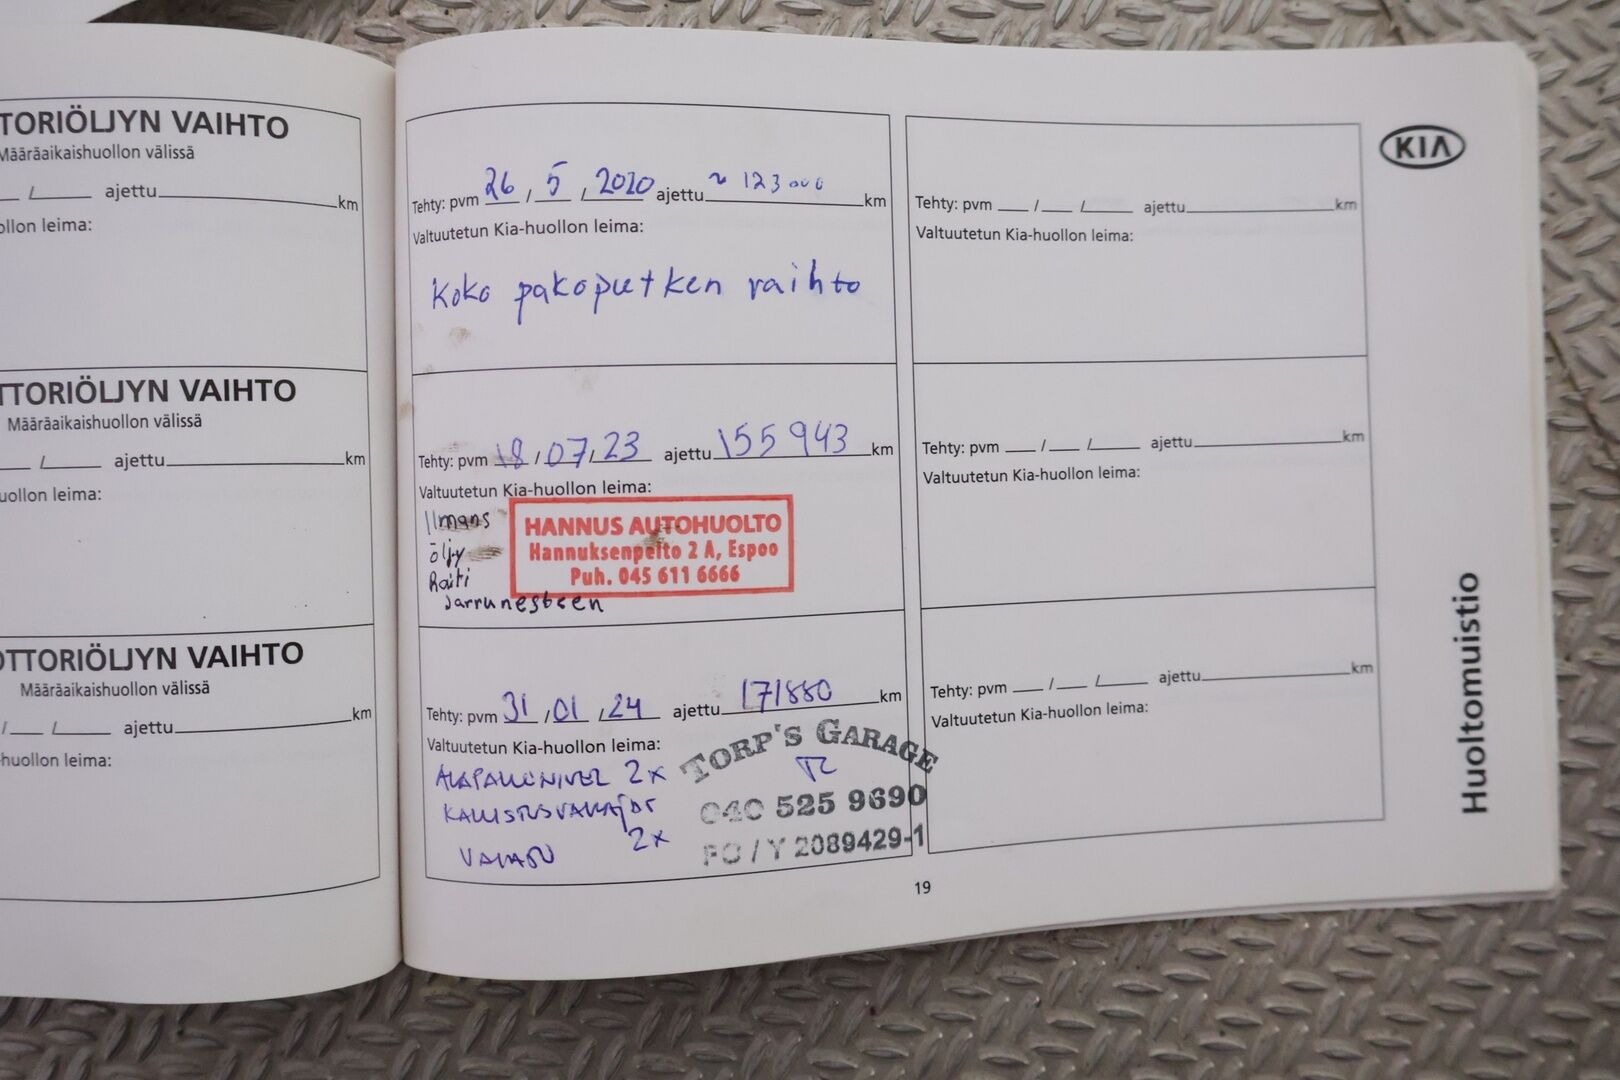 TORIÖLJYN VAIHTO
Määräaikaishuollon välissä
/ ajettu km
ollon leima:
TTORIÖLJYN VAIHTO
Määräaikaishuollon välissä
/ ajettu km
uollon leima:
OTTORIÖLJYN VAIHTO
Määräaikaishuollon välissä
/ / ajettu km
huollon leima:
Tehty: pvm 26 / 5 / 2020 ajettu ~ 123 000 km
Valtuutetun Kia-huollon leima:
Koko pakoputken vaihto
Tehty: pvm 18 / 07 / 23 ajettu 155 943 km
Valtuutetun Kia-huollon leima:
Ilmans
öljy
Raiti
Jarrunesteen
HANNUS AUTOHUOLTO
Hannuksenpelto 2 A, Espoo
Puh. 045 611 6666
Tehty: pvm 31 / 01 / 24 ajettu 171880 km
Valtuutetun Kia-huollon leima:
ALAPALLONIVEL 2x
KALLISTUSVAKAAJAT
2x
TORP'S GARAGE
040 525 9690
FO / Y 2089429-1
Tehty: pvm / / ajettu km
Valtuutetun Kia-huollon leima:
Tehty: pvm / / ajettu km
Valtuutetun Kia-huollon leima:
Tehty: pvm / / ajettu km
Valtuutetun Kia-huollon leima:
KIA
Huoltomuistio
19